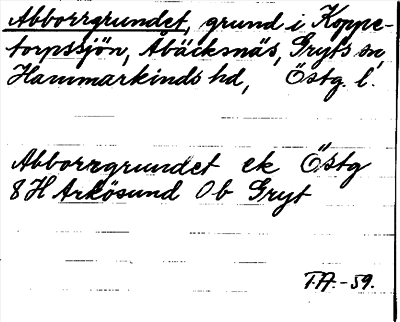 Abborrgrundet, grund i Koppe-
torpssjön, Åbäcksnäs, Gryts sn,
Hammarkinds hd, Östg. l.
Abborrgrundet ek Östg
8 H Arkösund 0 b Gryt
T.A.-59.